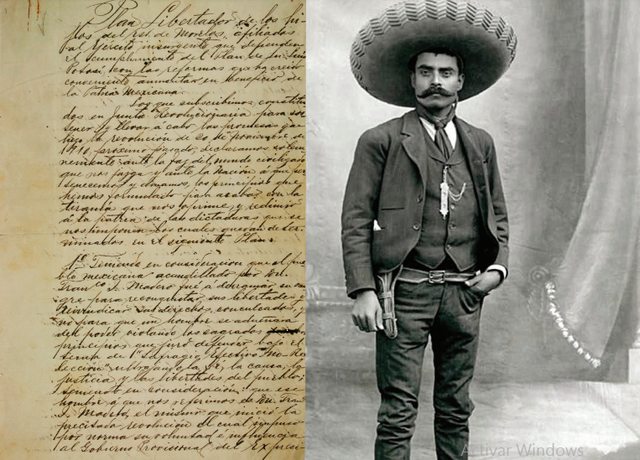 Plan Libertador de los hi-
jos del Est. de Morelos, afiliados
al Ejército insurgente que defienden
el cumplimiento del Plan de San Luis
Potosí con las reformas que ha creido
conveniente aumentar en beneficio de
la Patria Mexicana.
Los que subscribimos, constitui-
dos en Junta Revolucionaria para sos-
tener y llevar á cabo las promesas que
hizo la revolución de 20 de Noviembre de
1910 próximo pasado, declaramos solem-
nemente ante la faz del mundo civilizado
que nos juzga y ante la Nación á que per-
tenecemos y amamos, los principios que
hemos formulado para acabar con la
tiranía que nos oprime y redimir
á la patria de las dictaduras que se
nos imponen las cuales quedan deter-
minadas en el siguiente Plan:
1º. Teniendo en consideración que el pue-
blo mexicano acaudillado por Dn.
Franco. I. Madero fué á derramar su san-
gre para reconquistar sus libertades y
reivindicar sus derechos conculcados, y
no para que un hombre se adueñara
del poder violando los sagrados
principios que juró defender bajo el
lema de "Sufragio Efectivo No Ree-
lección" ultrajando la fé, la causa, la
justicia y las libertades del pueblo;
teniendo en consideración que ese
hombre á que nos referimos es Dn. Franco.
I. Madero, el mismo que inició la
precitada revolución el cual impuso
por norma su voluntad é influencia
al Gobierno Provisional del Ex Presi-
Activar Windows